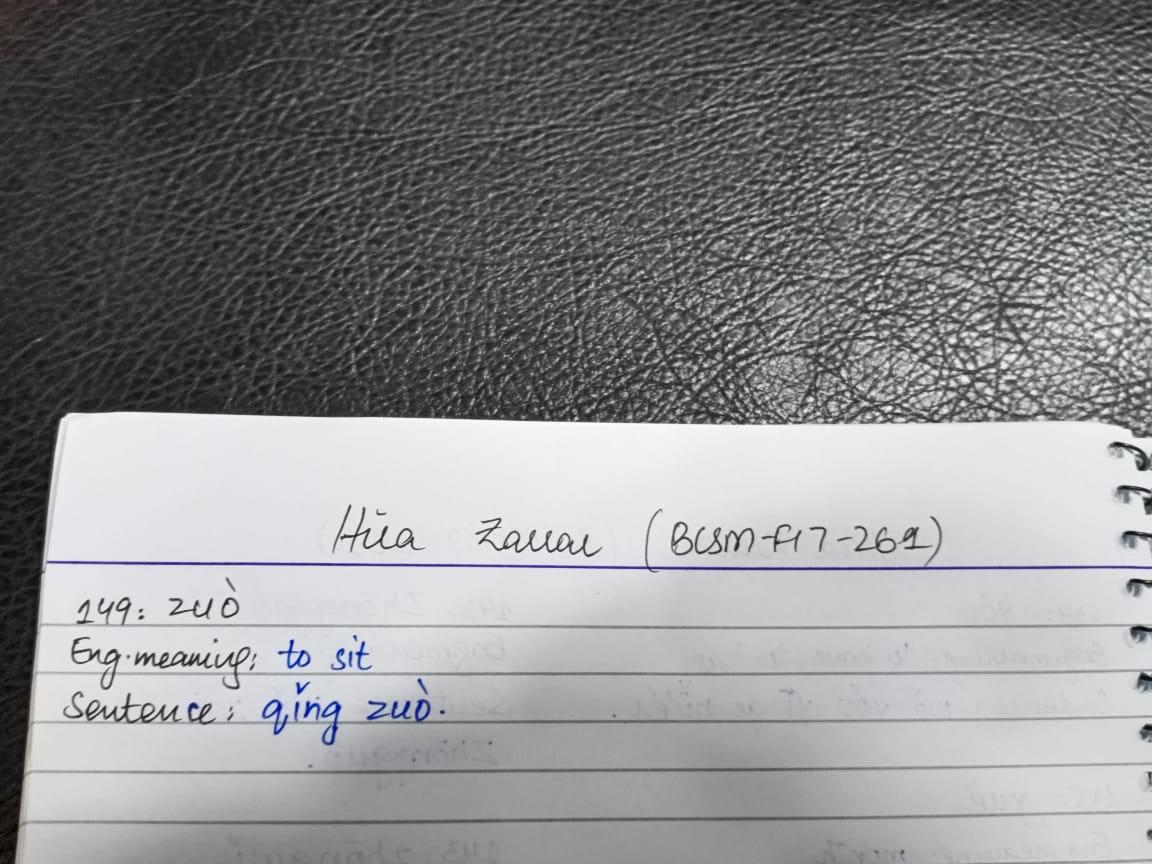 Hira Zarrar (BCSM-F17-261)
149: zuò
Eng. meaning: to sit
Sentence: qǐng zuò.